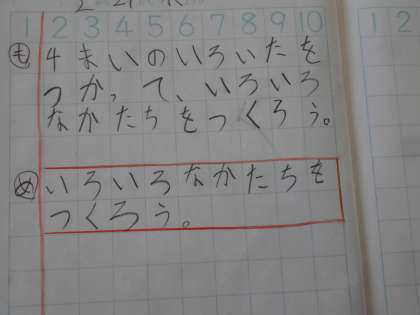 1 2 3 4 5 6 7 8 9 10 1 2
も 4まいのいろいたを
つかって、いろいろ
なかたちをつくろう。
め いろいろなかたちを
つくろう。